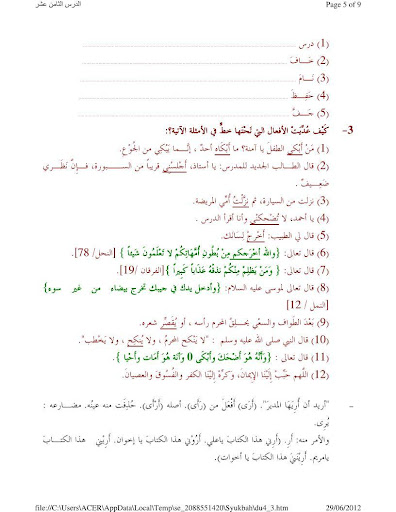 الدرس الثامن عشر Page 5 of 9
(1) درس
(2) خَـافَ
(3) نَـامَ
(4) حَفِـظَ
(5) جَـفَّ
3- كَيْف عُدِّيَتْ الأفعال التي تَحْتَها خطٌّ في الأمثلة الآتية؟:
(1) مَنْ أَبْكى الطفلَ يا آمنة؟ ما أَبْكَاه أحدٌ ، إنَّـما يَبْكِي من الجُوْعِ.
(2) قال الطـالب الجديد للمدرس: يا أستاذ، أَجْلِسْنِي قريباً من الســبورة، فـإنَّ نَظَـري
ضَعِيـفٌ .
(3) نزلت من السيارة، ثم نزَّلْتُ أُمِّي المريضة.
(4) يا أحمد، لا تُضْحكني وأنا أقرأ الدرس .
(5) قال لي الطبيب: أَخرِجْ لِسَانَك.
(6) قال تعالى: {والله أَخْرَجكم مِنْ بُطُونِ أُمَّهَاتِكُمْ لا تَعْلَمُونَ شَيْئاً } [النحل/ 78].
(7) قال تعالى: { وَمَنْ يَظْلِمْ مِنْكُمْ نذقْهُ عَذَاباً كَبِيراً }[الفرقان /19].
(8) قال تعالى لموسى عليه السلام: {وأدخل يدك في جيبك تخرج بيضاء من غير سوء}
[النمل / 12]
(9) بَعْدَ الطَّوافِ والسعْيِ يحـلقُ المحرم رأسه ، أو يُقَصِّر شعره.
(10) قال النبي صلى الله عليه وسلم : "لا يَنْكح المحرمُ ، ولا يُنْكِح ، ولا يَخْطب".
(11) قال تعالى : {وَأنَّهُ هُوَ أَضْحَكَ وأَبْكَى 0 وأنهُ هوَ أمَاتَ وأحْيا }.
(12) اللَّهم حَبِّبْ إِلَيْنا الإيمَانَ، وكرِّهْ إلَيْنا الكفر والفُسُوقَ والعصيانَ.
- "أريد أن أُرِيَهَا المديرَ". (أَرَى) أَفْعَلَ من (رَأَى). أصله (أَرْأَى). حُذِفَت منه عينُه. مضـارعه :
يُرى.
والأمر منه: أرِ. (أَرِني هذا الكتابَ ياعلي. أَرُوْني هذا الكتابَ يا إخوان. أَرِيْنِي هذا الكتـابَ
يامريم. أَرِيْنَنِي هذا الكتابَ يا أخوات).
file://C:\Users\ACER\AppData\Local\Temp\se_2088551420\Syukbah\du4_3.htm 29/06/2012